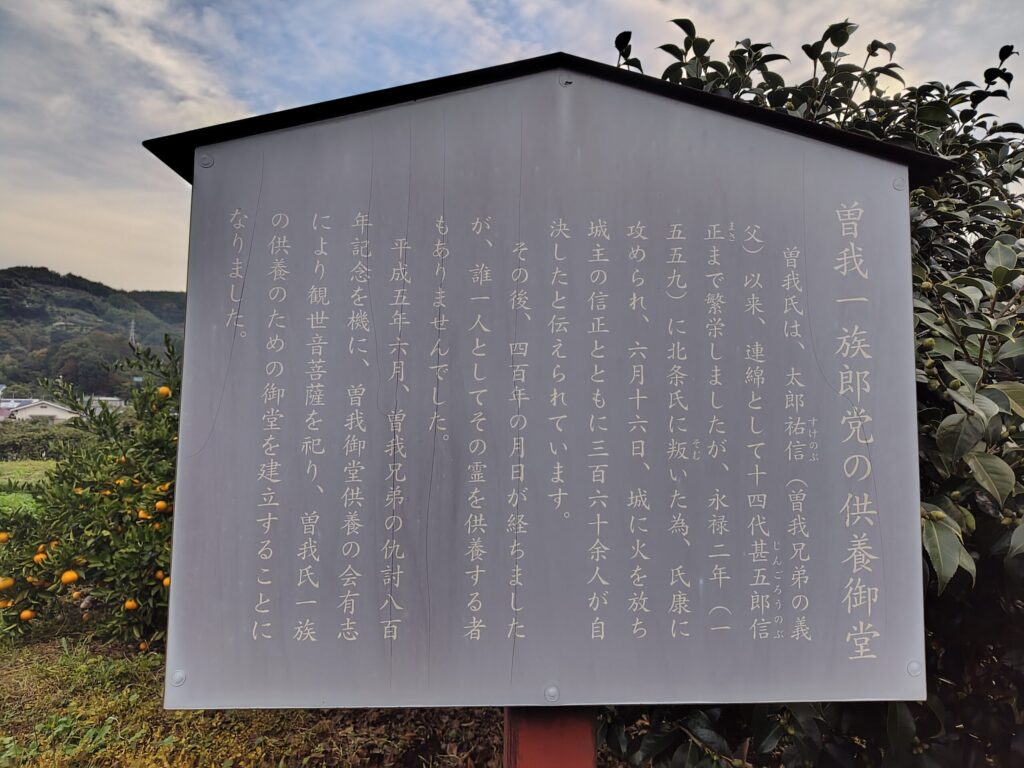 曽我一族郎党の供養御堂
曽我氏は、太郎祐信（曽我兄弟の義
すけのぶ
父）以来、連綿として十四代甚五郎信
じんごろうのぶ
正まで繁栄しましたが、永禄二年（一
まさ
五五九）に北条氏に叛いた為、氏康に
そむ
攻められ、六月十六日、城に火を放ち
城主の信正とともに三百六十余人が自
決したと伝えられています。
その後、四百年の月日が経ちました
が、誰一人としてその霊を供養する者
もありませんでした。
平成五年六月、曽我兄弟の仇討八百
年記念を機に、曽我御堂供養の会有志
により観世音菩薩を祀り、曽我氏一族
の供養のための御堂を建立することに
なりました。